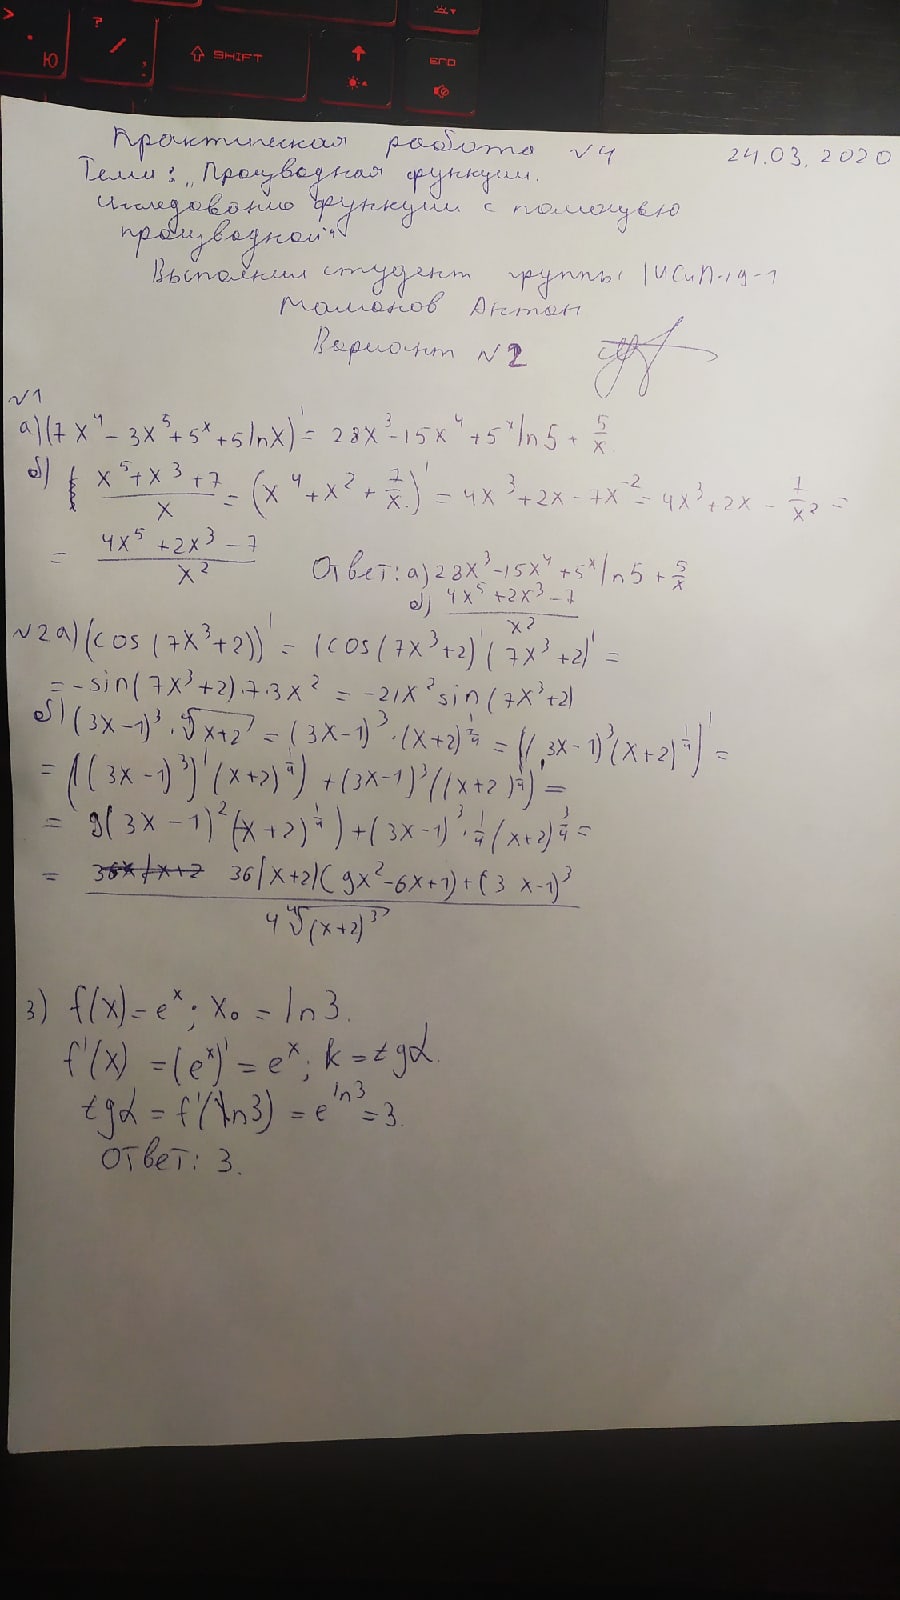 > Ю ? / ; ⇧ SHIFT ↑ ЕГО
Практическая работа №4 24.03.2020
Тема: „Производная функции.
Исследование функции с помощью
производной"
Выполнил студент группы
Мамонов Антон
Вариант №2
№1
а) (7x⁴ - 3x⁵ + 5ˣ + 5lnx)' = 28x³ - 15x⁴ + 5ˣ ln5 + 5/x
б) (x⁵ + x³ + 7)/x = (x⁴ + x² + 7/x)' = 4x³ + 2x - 7x⁻² = 4x³ + 2x - 7/x² =
= (4x⁵ + 2x³ - 7)/x² Ответ: а) 28x³ - 15x⁴ + 5ˣ ln5 + 5/x
б) (4x⁵ + 2x³ - 7)/x²
№2 а) (cos(7x³+2))' = (cos(7x³+2)'(7x³+2)' =
= -sin(7x³+2)·7·3x² = -21x² sin(7x³+2)
б) (3x-1)³·⁴√(x+2) = (3x-1)³·(x+2)^(1/4) = ((3x-1)³(x+2)^(1/4))' =
= ((3x-1)³)'(x+2)^(1/4)) + (3x-1)³((x+2)^(1/4))' =
= 9(3x-1)²(x+2)^(1/4)) + (3x-1)³·1/4(x+2)^(3/4) =
= (36(x+2)(9x²-6x+1)+(3x-1)³)/(4⁴√(x+2)³)
3) f(x) = eˣ; x₀ = ln3.
f'(x) = (eˣ)' = eˣ; k = tgα.
tgα = f'(ln3) = e^(ln3) = 3.
Ответ: 3.